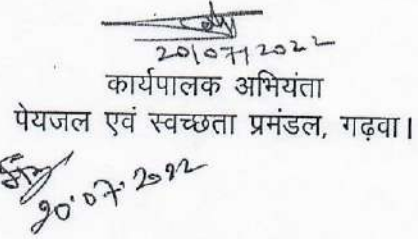 20/07/2022
कार्यपालक अभियंता
पेयजल एवं स्वच्छता प्रमंडल, गढ़वा।
20.07.2022